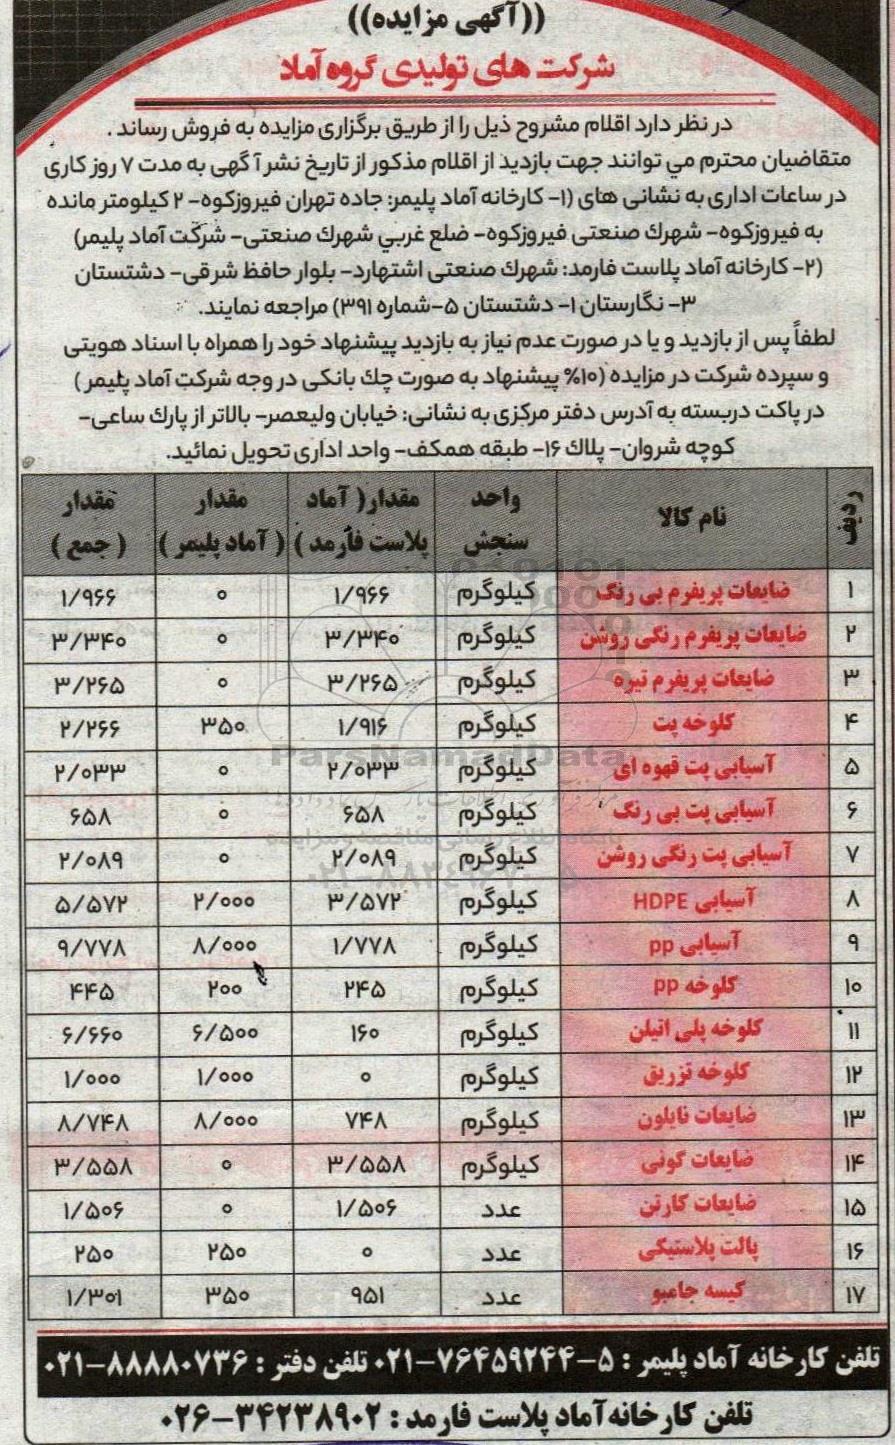 ((آگهی مزایده))
شرکت های تولیدی گروه آماد
در نظر دارد اقلام مشروح ذیل را از طریق برگزاری مزایده به فروش رساند .
متقاضیان محترم مي توانند جهت بازدید از اقلام مذکور از تاریخ نشر آگهی به مدت ۷ روز کاری
در ساعات اداری به نشانی های (۱- کارخانه آماد پلیمر: جاده تهران فیروزکوه- ۲ کیلومتر مانده
به فیروزکوه- شهرك صنعتی فیروزکوه- ضلع غربي شهرك صنعتی- شرکت آماد پلیمر)
(۲- کارخانه آماد پلاست فارمد: شهرك صنعتی اشتهارد- بلوار حافظ شرقی- دشتستان
۳- نگارستان ۱- دشتستان ۵-شماره ۳۹۱) مراجعه نمایند.
لطفاً پس از بازدید و یا در صورت عدم نیاز به بازدید پیشنهاد خود را همراه با اسناد هویتی
و سپرده شرکت در مزایده (۱۰% پیشنهاد به صورت چك بانکی در وجه شرکت آماد پلیمر )
در پاکت دربسته به آدرس دفتر مرکزی به نشانی: خیابان ولیعصر- بالاتر از پارك ساعی-
کوچه شروان- پلاك ۱۶- طبقه همکف- واحد اداری تحویل نمائید.
ردیف نام کالا واحد سنجش مقدار( آماد پلاست فارمد ) مقدار ( آماد پلیمر ) مقدار ( جمع )
۱ ضایعات پریفرم بی رنگ کیلوگرم ۱/۹۶۶ ۰ ۱/۹۶۶
۲ ضایعات پریفرم رنگی روشن کیلوگرم ۳/۳۴۰ ۰ ۳/۳۴۰
۳ ضایعات پریفرم تیره کیلوگرم ۳/۲۶۵ ۰ ۳/۲۶۵
۴ کلوخه پت کیلوگرم ۱/۹۱۶ ۳۵۰ ۲/۲۶۶
۵ آسیابی پت قهوه ای کیلوگرم ۲/۰۳۳ ۰ ۲/۰۳۳
۶ آسیابی پت بی رنگ کیلوگرم ۶۵۸ ۰ ۶۵۸
۷ آسیابی پت رنگی روشن کیلوگرم ۲/۰۸۹ ۰ ۲/۰۸۹
۸ آسیابی HDPE کیلوگرم ۳/۵۷۲ ۲/۰۰۰ ۵/۵۷۲
۹ آسیابی pp کیلوگرم ۱/۷۷۸ ۸/۰۰۰ ۹/۷۷۸
۱۰ کلوخه pp کیلوگرم ۲۴۵ ۲۰۰ ۴۴۵
۱۱ کلوخه پلی اتیلن کیلوگرم ۱۶۰ ۶/۵۰۰ ۶/۶۶۰
۱۲ کلوخه تزریق کیلوگرم ۰ ۱/۰۰۰ ۱/۰۰۰
۱۳ ضایعات نایلون کیلوگرم ۷۴۸ ۸/۰۰۰ ۸/۷۴۸
۱۴ ضایعات گونی کیلوگرم ۳/۵۵۸ ۰ ۳/۵۵۸
۱۵ ضایعات کارتن عدد ۱/۵۰۶ ۰ ۱/۵۰۶
۱۶ پالت پلاستیکی عدد ۰ ۲۵۰ ۲۵۰
۱۷ کیسه جامبو عدد ۹۵۱ ۳۵۰ ۱/۳۰۱
تلفن کارخانه آماد پلیمر : ۵-۷۶۴۵۹۲۴۴-۰۲۱ تلفن دفتر : ۸۸۸۸۰۷۳۶-۰۲۱
تلفن کارخانه آماد پلاست فارمد : ۳۴۲۳۸۹۰۲-۰۲۶
ParsNamadData